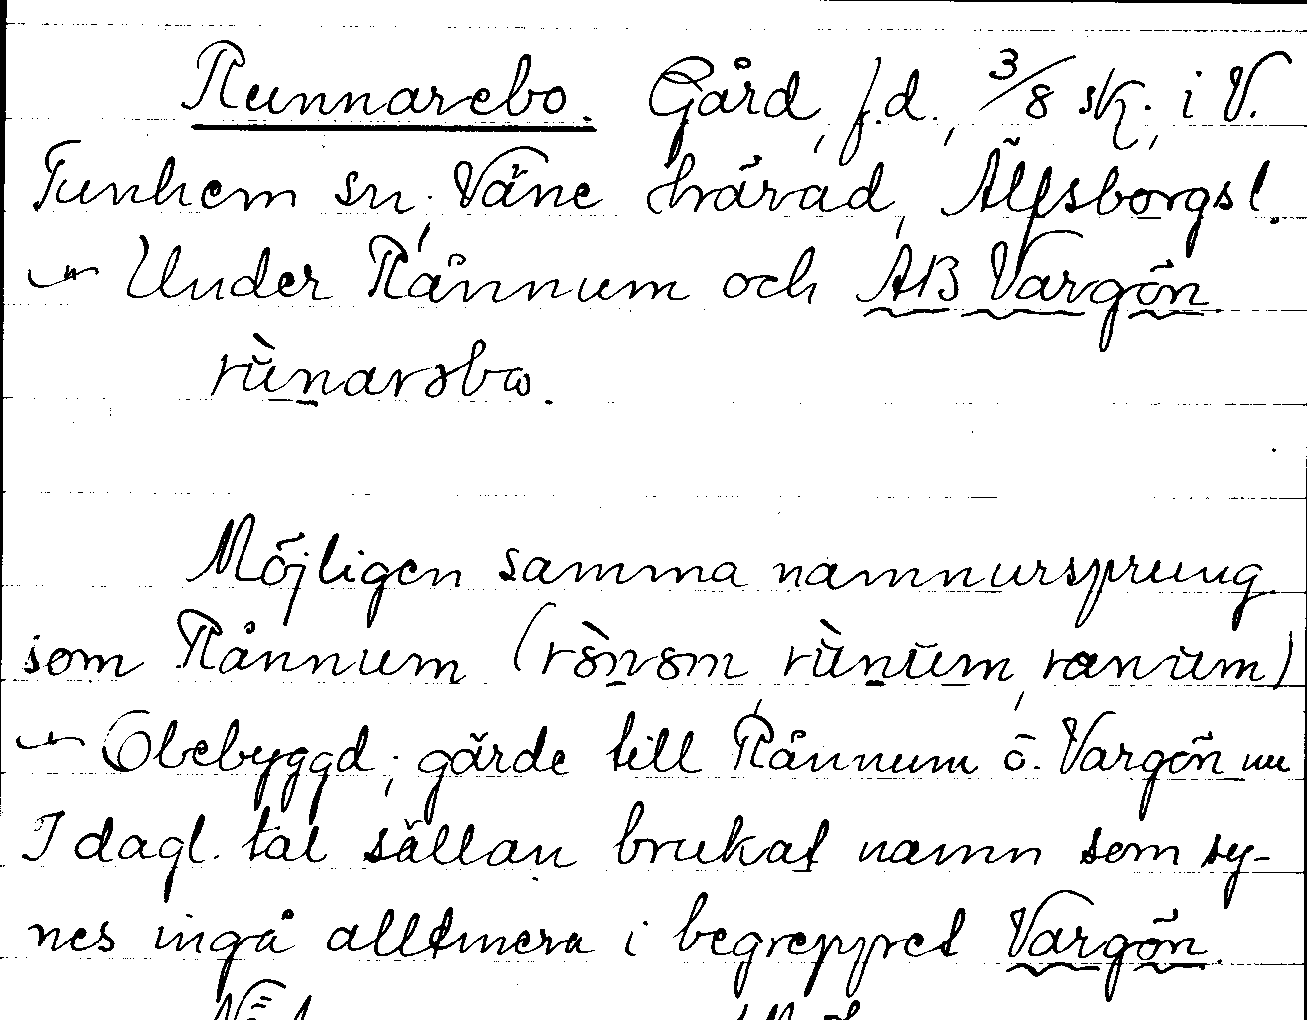 Runnarebo. Gård, f.d., 3/8 sk., i V.
Tunhem sn, Väne härad, Älfsborgs l.
Under Rånnum och AB Vargön.
rùnarsbω.
Möjligen samma namnursprung
som Rånnum (rònom, rùnŭm, ranŭm)
Obebyggd; gärde till Rånnum ö. Vargön nu
I dagl. tal sällan brukat namn som sy-
nes ingå alltmera i begreppet Vargön.